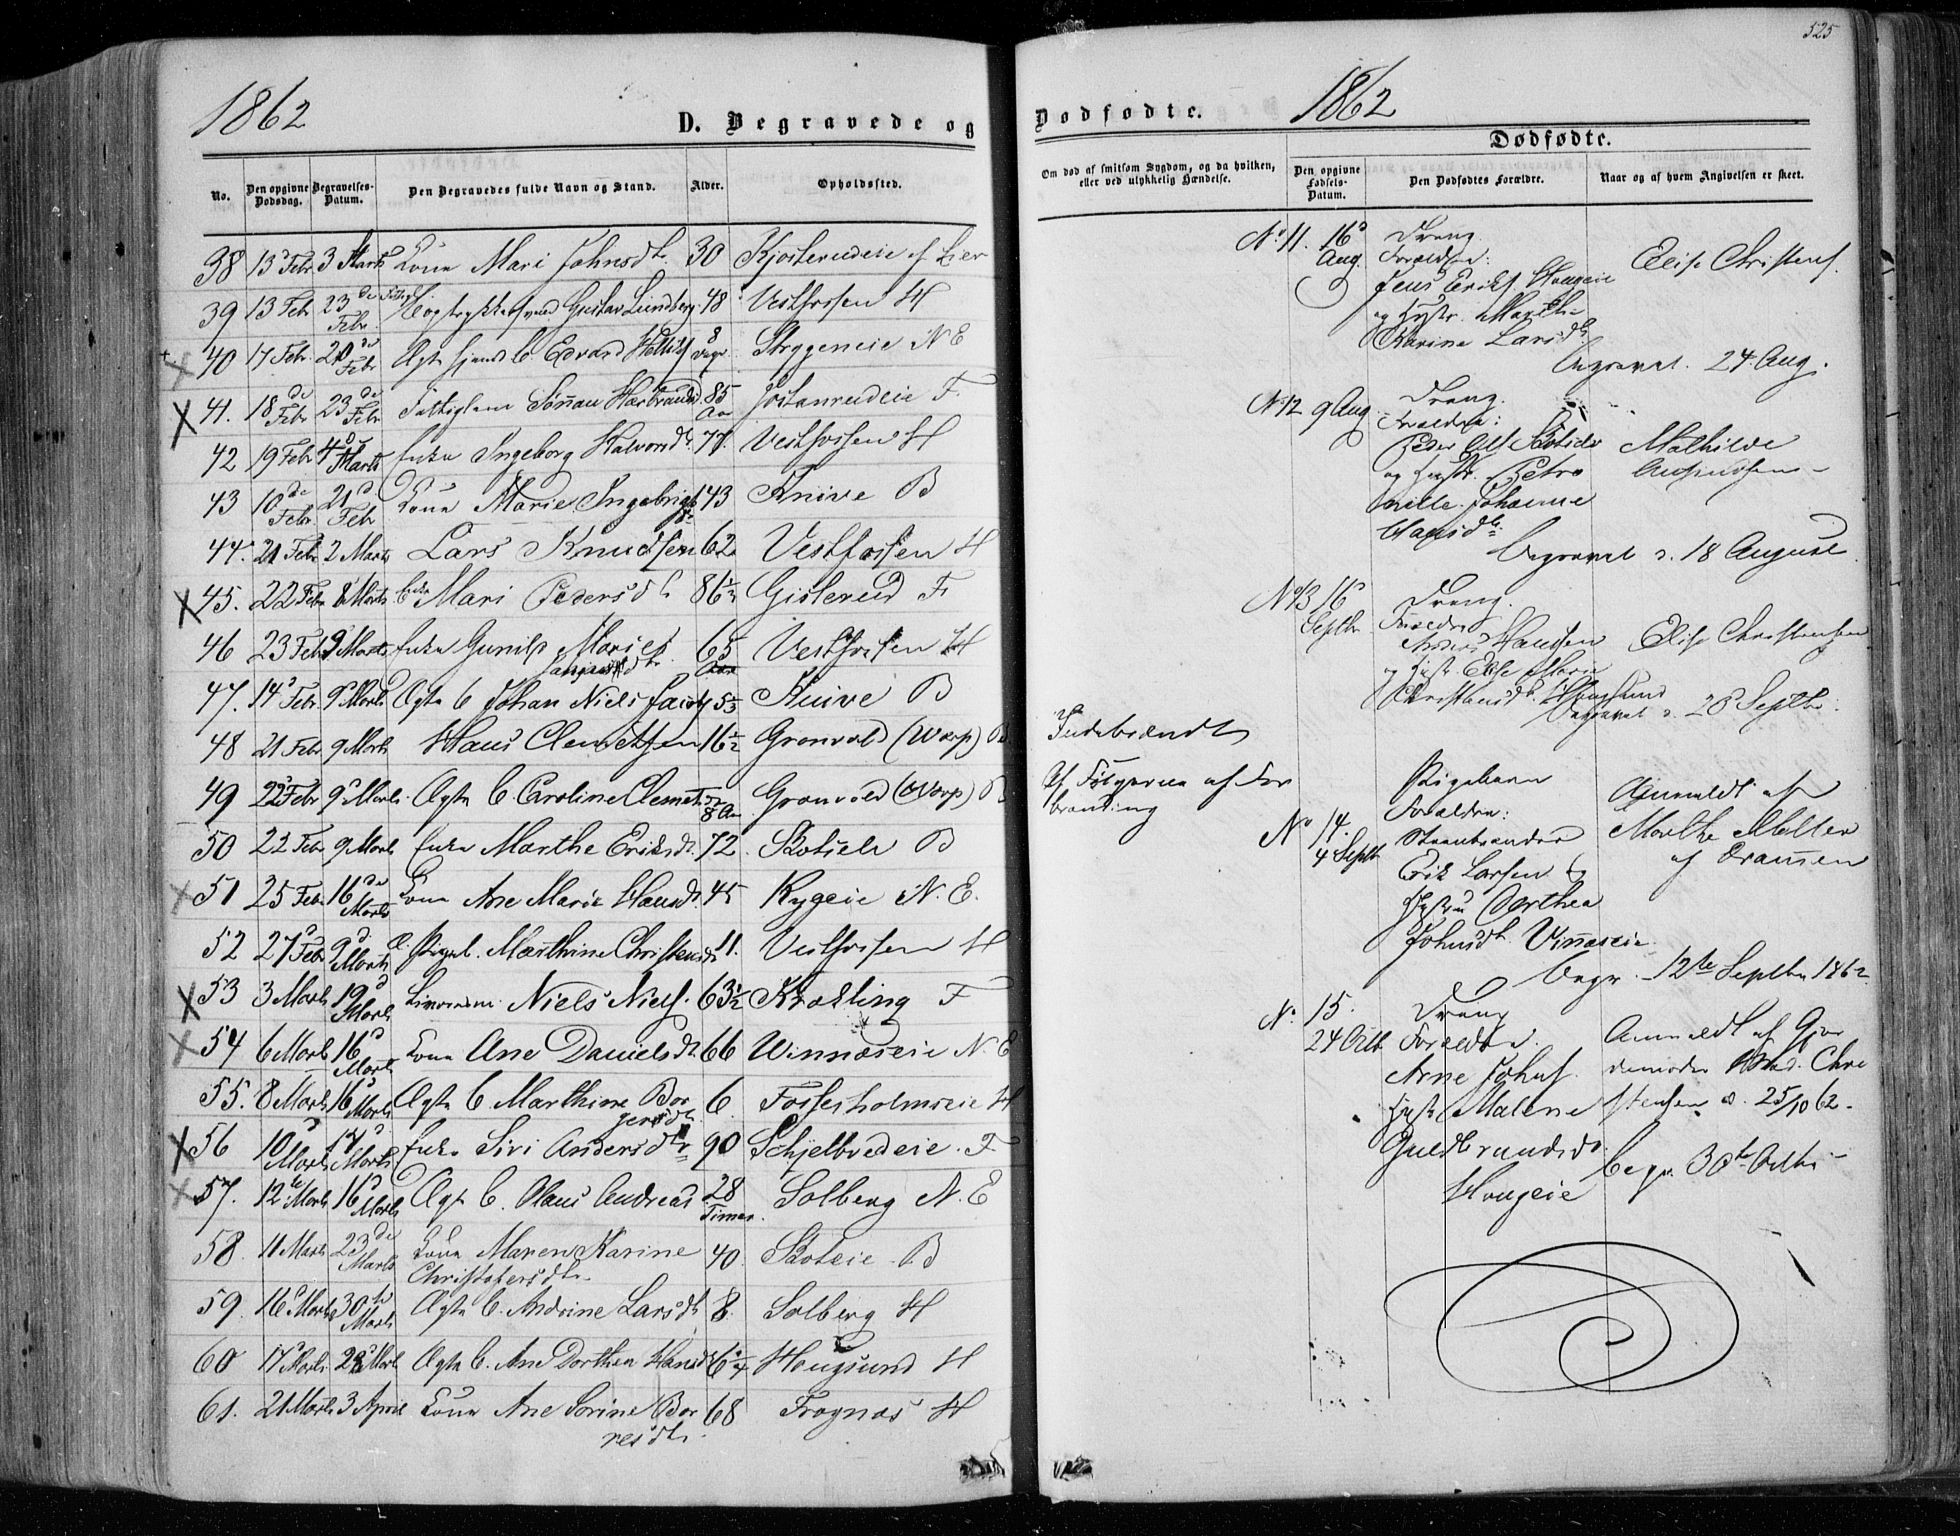 1862
D. Begravede og
No.
Den opgivne Dødsdag.
Begravelses-Datum.
Den Begravedes fulde Navn og Stand.
Alder.
Opholdssted.
38 13 Febr 3 Marts Kone Mari Johnsdtr 30 Kjosterudeie af Lier
39 13 Febr 23de Febr Gustav Lundberg 48 Vestfossen H
40 17 Febr Febr Ægte C Edvard 8 Dage Stryggeneie N E
41. 18de Febr 23de Febr Fattiglem 85 Aar F
42 19 Febr 4 Marts Enke Ingeborg Halvorsdtr 77. Vestfossen H
43 10de Febr 21d Febr Kone Marie Ingebrigtsdtr 43 Knive B
44. 21 Febr 2 Marts Lars Knudsen 62 Vestfossen H
45. 22 Febr 8 Marts Enke Mari Pedersdtr 86½ Gislerud F
46 23 Febr 9 Marts Enke Marie 65 Aar Vestfossen H
47. 14 Febr 9 Marts Ægte C Johan Niels Knive B
48 21 Febr 9 Marts Hans Clemetsen 16½ Gronvold (Worp) B
49 22 Febr 9 Marts. Ægte C. Caroline Clemetsdtr 8 Aar Gronvold (Worp) B
50 22 Febr 9 Marts Enke Marthe Eriksdtr. 72. Skotsele B
51 25 Febr 16de Marts Kone Ane Marie Hansdtr. 45 Rygeie N. E.
52 27 Febr 9d Marts Pigeb. Marthine Christensdtr 11. Vestfossen H
53 3 Marts 19d Marts Niels Niels. 63½ Krækling F
54 6 Marts 16d Marts Kone Ane Danielsdtr. 66 Winnæseie N. E
55. 8 Marts 16 Marts Ægte C Marthine Bor
gersdtr 6 Fossesholmseie H
56 10 Marts 17 Marts Enke Siri Andersdtr 90 Schjelbredeie. F
57. 12te Marts 16 Marts Ægte C. Olaus Andreas 28 Timer. Solberg N. E
58. 11 Marts 23de Marts Kone Maren Karine
Christofersdtr. 40. Skoteie B
59. 16 Marts 30te Marts Ægte C. Andrine Larsdtr 8. Solberg H
60 17 Marts. Marts Ægte C. Ane Dorthea Hansdtr Hougsund H
61. 21 Marts 3 April Kone Ane Sorine Bor
resdtr. 68 Frognæs H
525
Dødfødte.
1862
Dødfødte.
Om død af smitsom Sygdom, og da hvilken, eller ved ulykkelig Hændelse.
Den opgivne Fødsels-Datum.
Den Dødfødtes Forældre.
Naar og af hvem Angivelsen er skeet.
No. 11. 16d Aug. Dreng.
Forældre:
Jens Eriks. Hougeie
og Hustr. Marthe
Karine Larsdtr
Elise Christens.
Begravet. 24 Aug.
No. 12 9 Aug Dreng.
Forældre:
Peder
og Hustr. Petro
nille Johanne
Hansdtr
Mathilde
Begravet d. 18 August
No 13 16d Septbr Dreng.
Forældre
Anders Hansen
og Hustr. Else Marie
Christiansdtr. Hougsund
Elise Christensen
Begravet d. 28 Septbr.
Indebrændt
Af Følgerne af For
brænding
No 14. 4 Septb Pigebarn
Forældre:
Erik Larsen &
Hustru Berthea
Johnsdtr. Vinnæseie.
Anmeldt af
Marthe Møller
af Dramen
Begr. 12te Septbr 1862
No. 15. 24 Octb Dreng
Forældre.
Arne Johns.
Hustr Malene
Guldbrandsdtr
Hougeie
Anmeldt af Gjor
demoder Mad. Chri
stensen d. 25/10 62.
begr. 30te Octbr